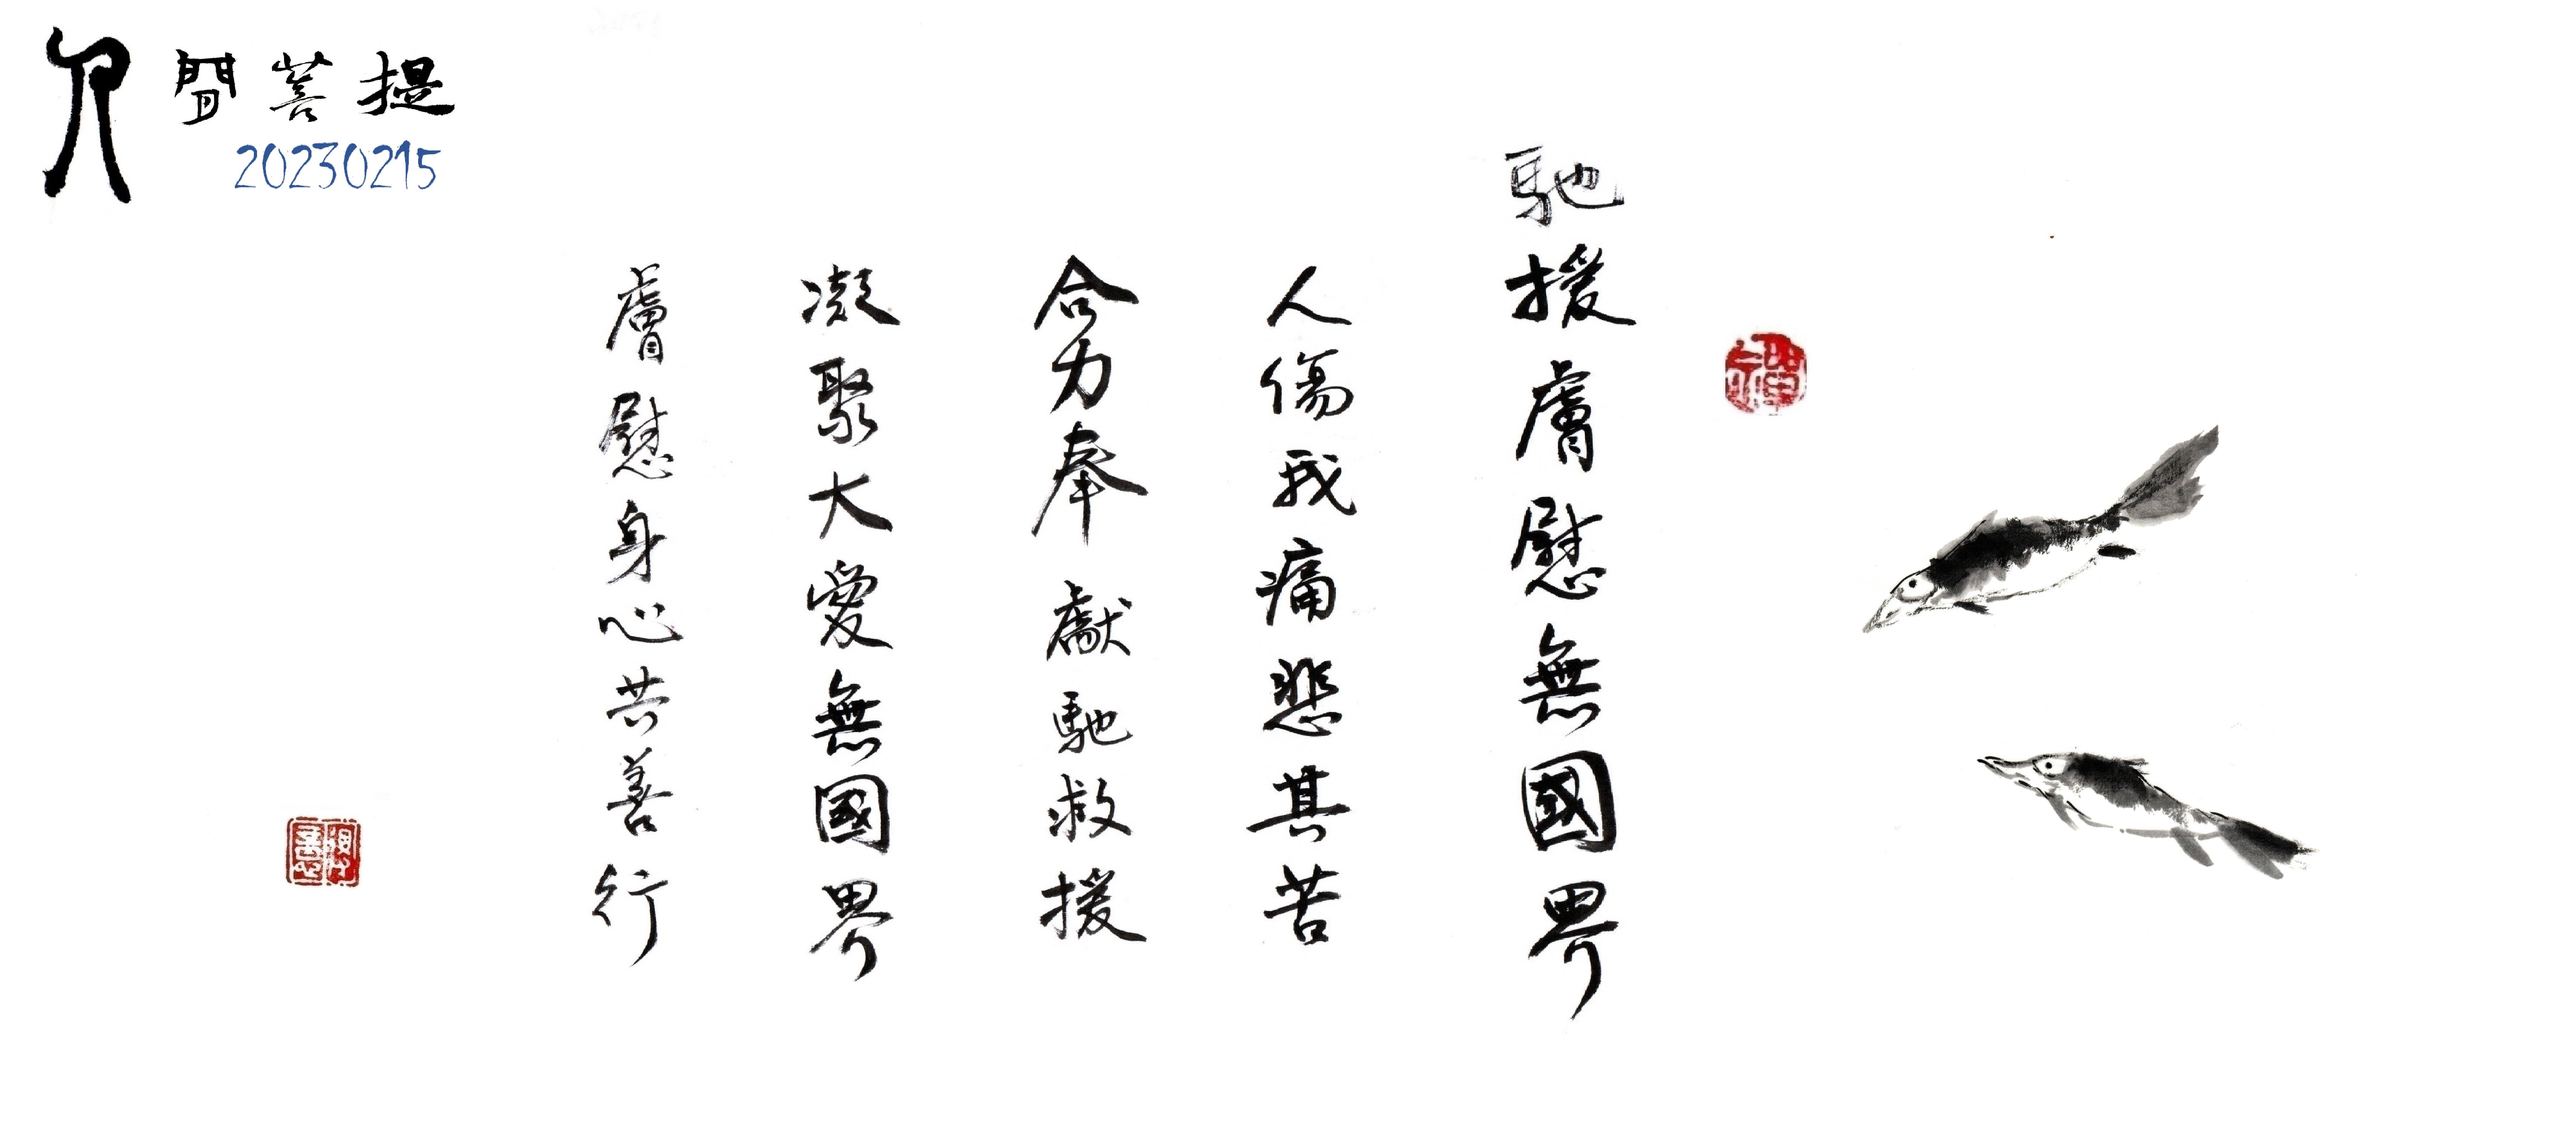 人間菩提
20230215
馳援膚慰無國界
人傷我痛悲其苦
合力奉獻馳救援
凝聚大愛無國界
膚慰身心共善行